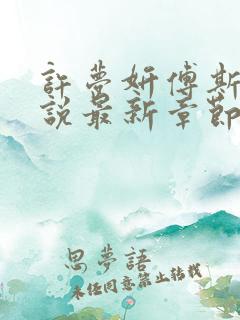 許夢妍傅斯
說最新章節
思夢語
未經同意禁止轉載